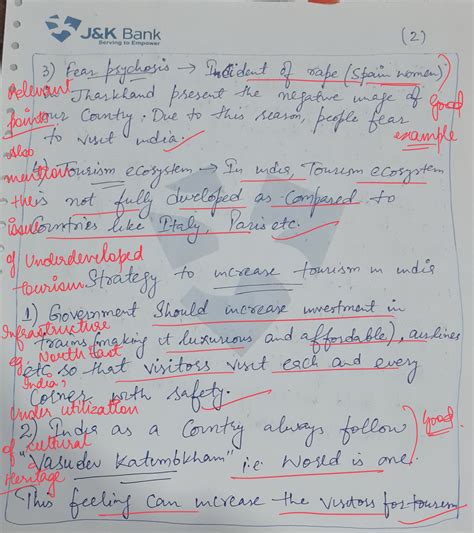 J&K Bank
Serving to Empower
(2)
3) Fear psychosis → Incident of rape (Spain women)
Jharkhand present the negative image of
our Country. Due to this reason, people fear
to visit india.
good
example
Relevant
points
also
mention
the
issue
of Underdeveloped
tourism
4) Tourism ecosystem → In india, Tourism ecosystem
is not fully developed as compared to
Countries like Italy, Paris etc.
Strategy to increase tourism in india
1) Government Should increase investment in
trains (making it luxurious and affordable), airlines
etc so that visitors visit each and every
corner with safety.
Infrastructure
eg. North East
India,
Under utilization
of Cultural
Heritage
2) India as a Country always follow
"Vasudev Katumbkham" i.e. World is one.
This feeling can increase the visitors for tourism
Good